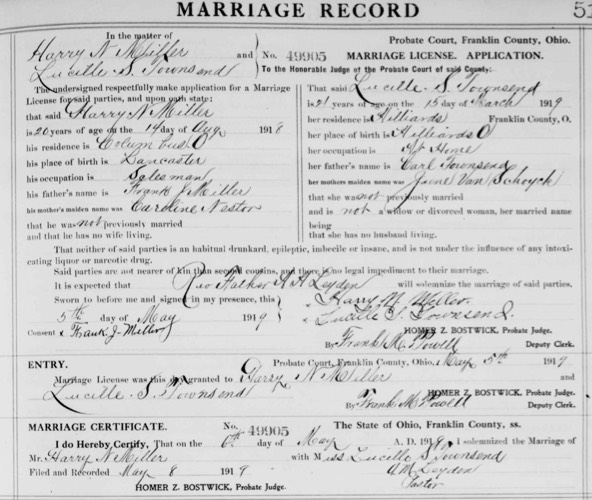 MARRIAGE RECORD 51
In the matter of
Harry N Miller
and
Lucille S. Townsend
No. 49905
Probate Court, Franklin County, Ohio.
MARRIAGE LICENSE. APPLICATION.
To the Honorable Judge of the Probate Court of said County:
The undersigned respectfully make application for a Marriage
License for said parties, and upon oath state:
that said Harry N Miller
is 20 years of age on the 14 day of Aug 1918
his residence is Columbus O
his place of birth is Lancaster
his occupation is Salesman
his father's name is Frank J Miller
his mother's maiden name was Caroline Nestor
that he was not previously married
and that he has no wife living.
That said Lucille S. Townsend
is 21 years of age on the 15 day of March 1919
her residence is Hilliards Franklin County, O.
her place of birth is Hilliards O
her occupation is At Home
her father's name is Carl Townsend
her mothers maiden name was June Van Schoyck
that she was not previously married
and is not a widow or divorced woman, her married name
being
that she has no husband living.
That neither of said parties is an habitual drunkard, epileptic, imbecile or insane, and is not under the influence of any intoxi-
cating liquor or narcotic drug.
Said parties are not nearer of kin than second cousins, and there is no legal impediment to their marriage.
It is expected that Rev Father A H Leyden will solemnize the marriage of said parties.
Sworn to before me and signed in my presence, this
5th day of May 1919
Consent Frank J. Miller
Harry N. Miller
Lucille S. Townsend.
HOMER Z. BOSTWICK, Probate Judge.
By Frank M. Powell Deputy Clerk.
ENTRY.
Probate Court, Franklin County, Ohio, May 5th 1919
Marriage License was this day granted to Harry N Miller and
Lucille S. Townsend
HOMER Z. BOSTWICK, Probate Judge.
By Frank M. Powell Deputy Clerk.
MARRIAGE CERTIFICATE. No. 49905 The State of Ohio, Franklin County, ss.
I do Hereby Certify, That on the 6th day of May A. D. 1919, I solemnized the Marriage of
Mr. Harry N Miller with Miss Lucille S Townsend
Filed and Recorded May 8 1919
Leyden
Pastor
HOMER Z. BOSTWICK, Probate Judge.